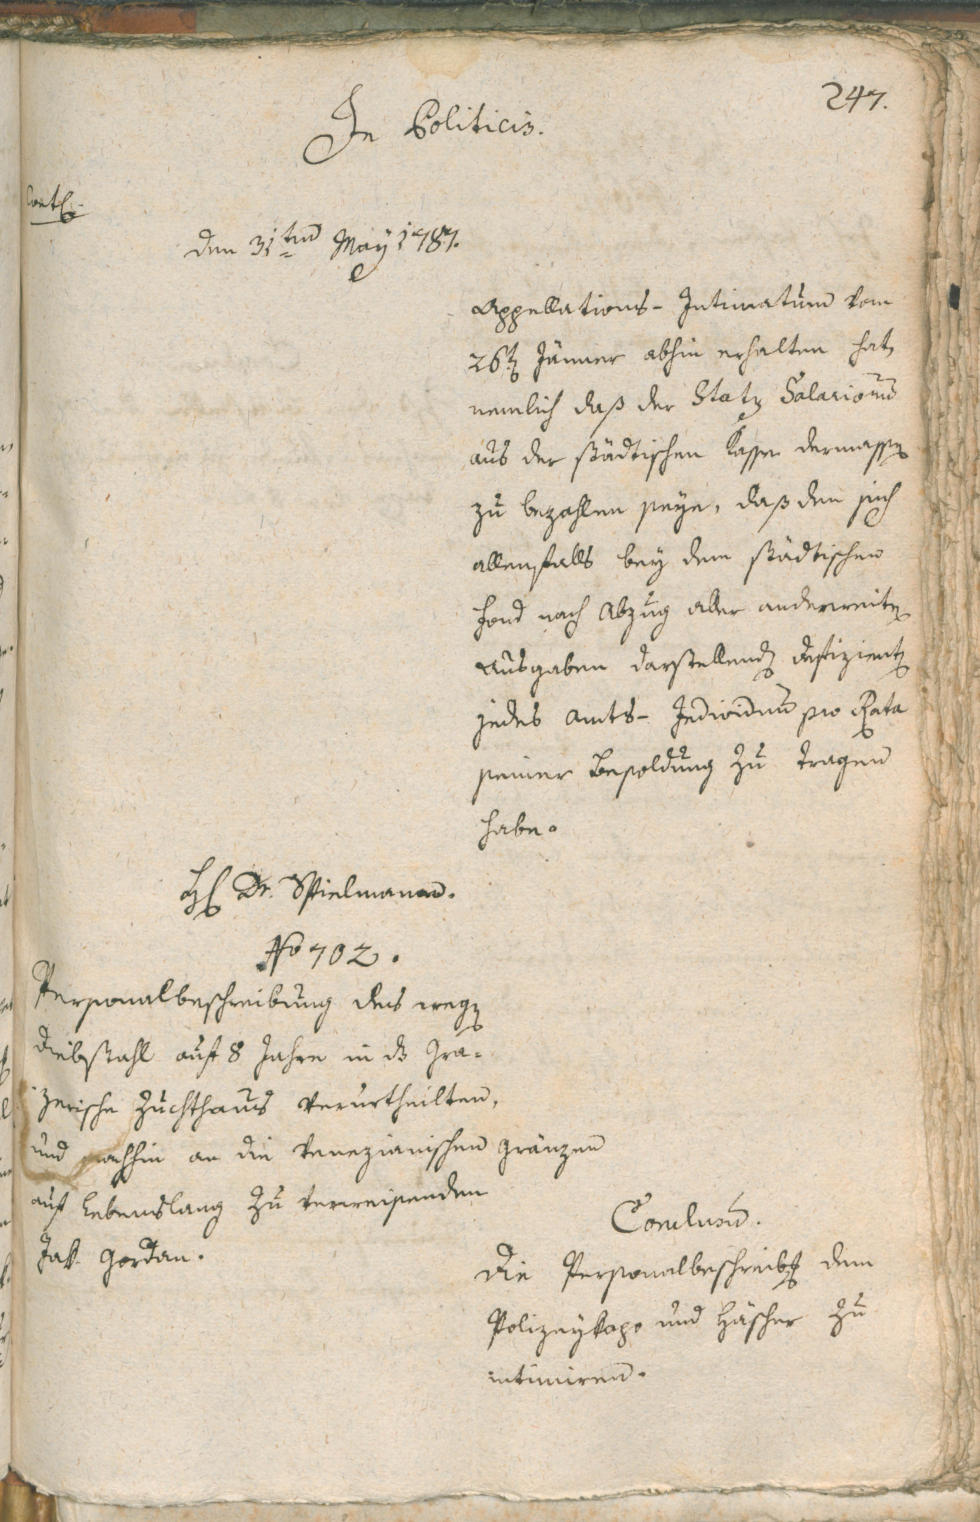 247.
In Politicis.
Contẽ.
den 31ten May 1787.
Appellations- Intimatum vom
26t Jänner abhin erhalten hat,
nemlich daß der Staty Salariorum
aus der städtischen Kasse dermassen
zu bezahlen seye, daß den sich
allenfalls bey dem städtischen
Fond nach Abzug aller anderweiten
Ausgaben darstellenden Defizienten
jedes Amts- Individuum pro Rata
seiner Besoldung zu tragen
habe.
H Dr. Spielmann.
No 702.
Personalbeschreibung des wegen
Diebstahl auf 8 Jahre in das Grä-
zerische Zuchthaus verurtheilten,
und nachhin an die venezianischen Gränzen
auf Lebenslang zu verweisenden
Jak. Gordan.
Conclusum.
Die Personalbeschreibung dem
Polizeykapo und Häscher zu
intimiren.